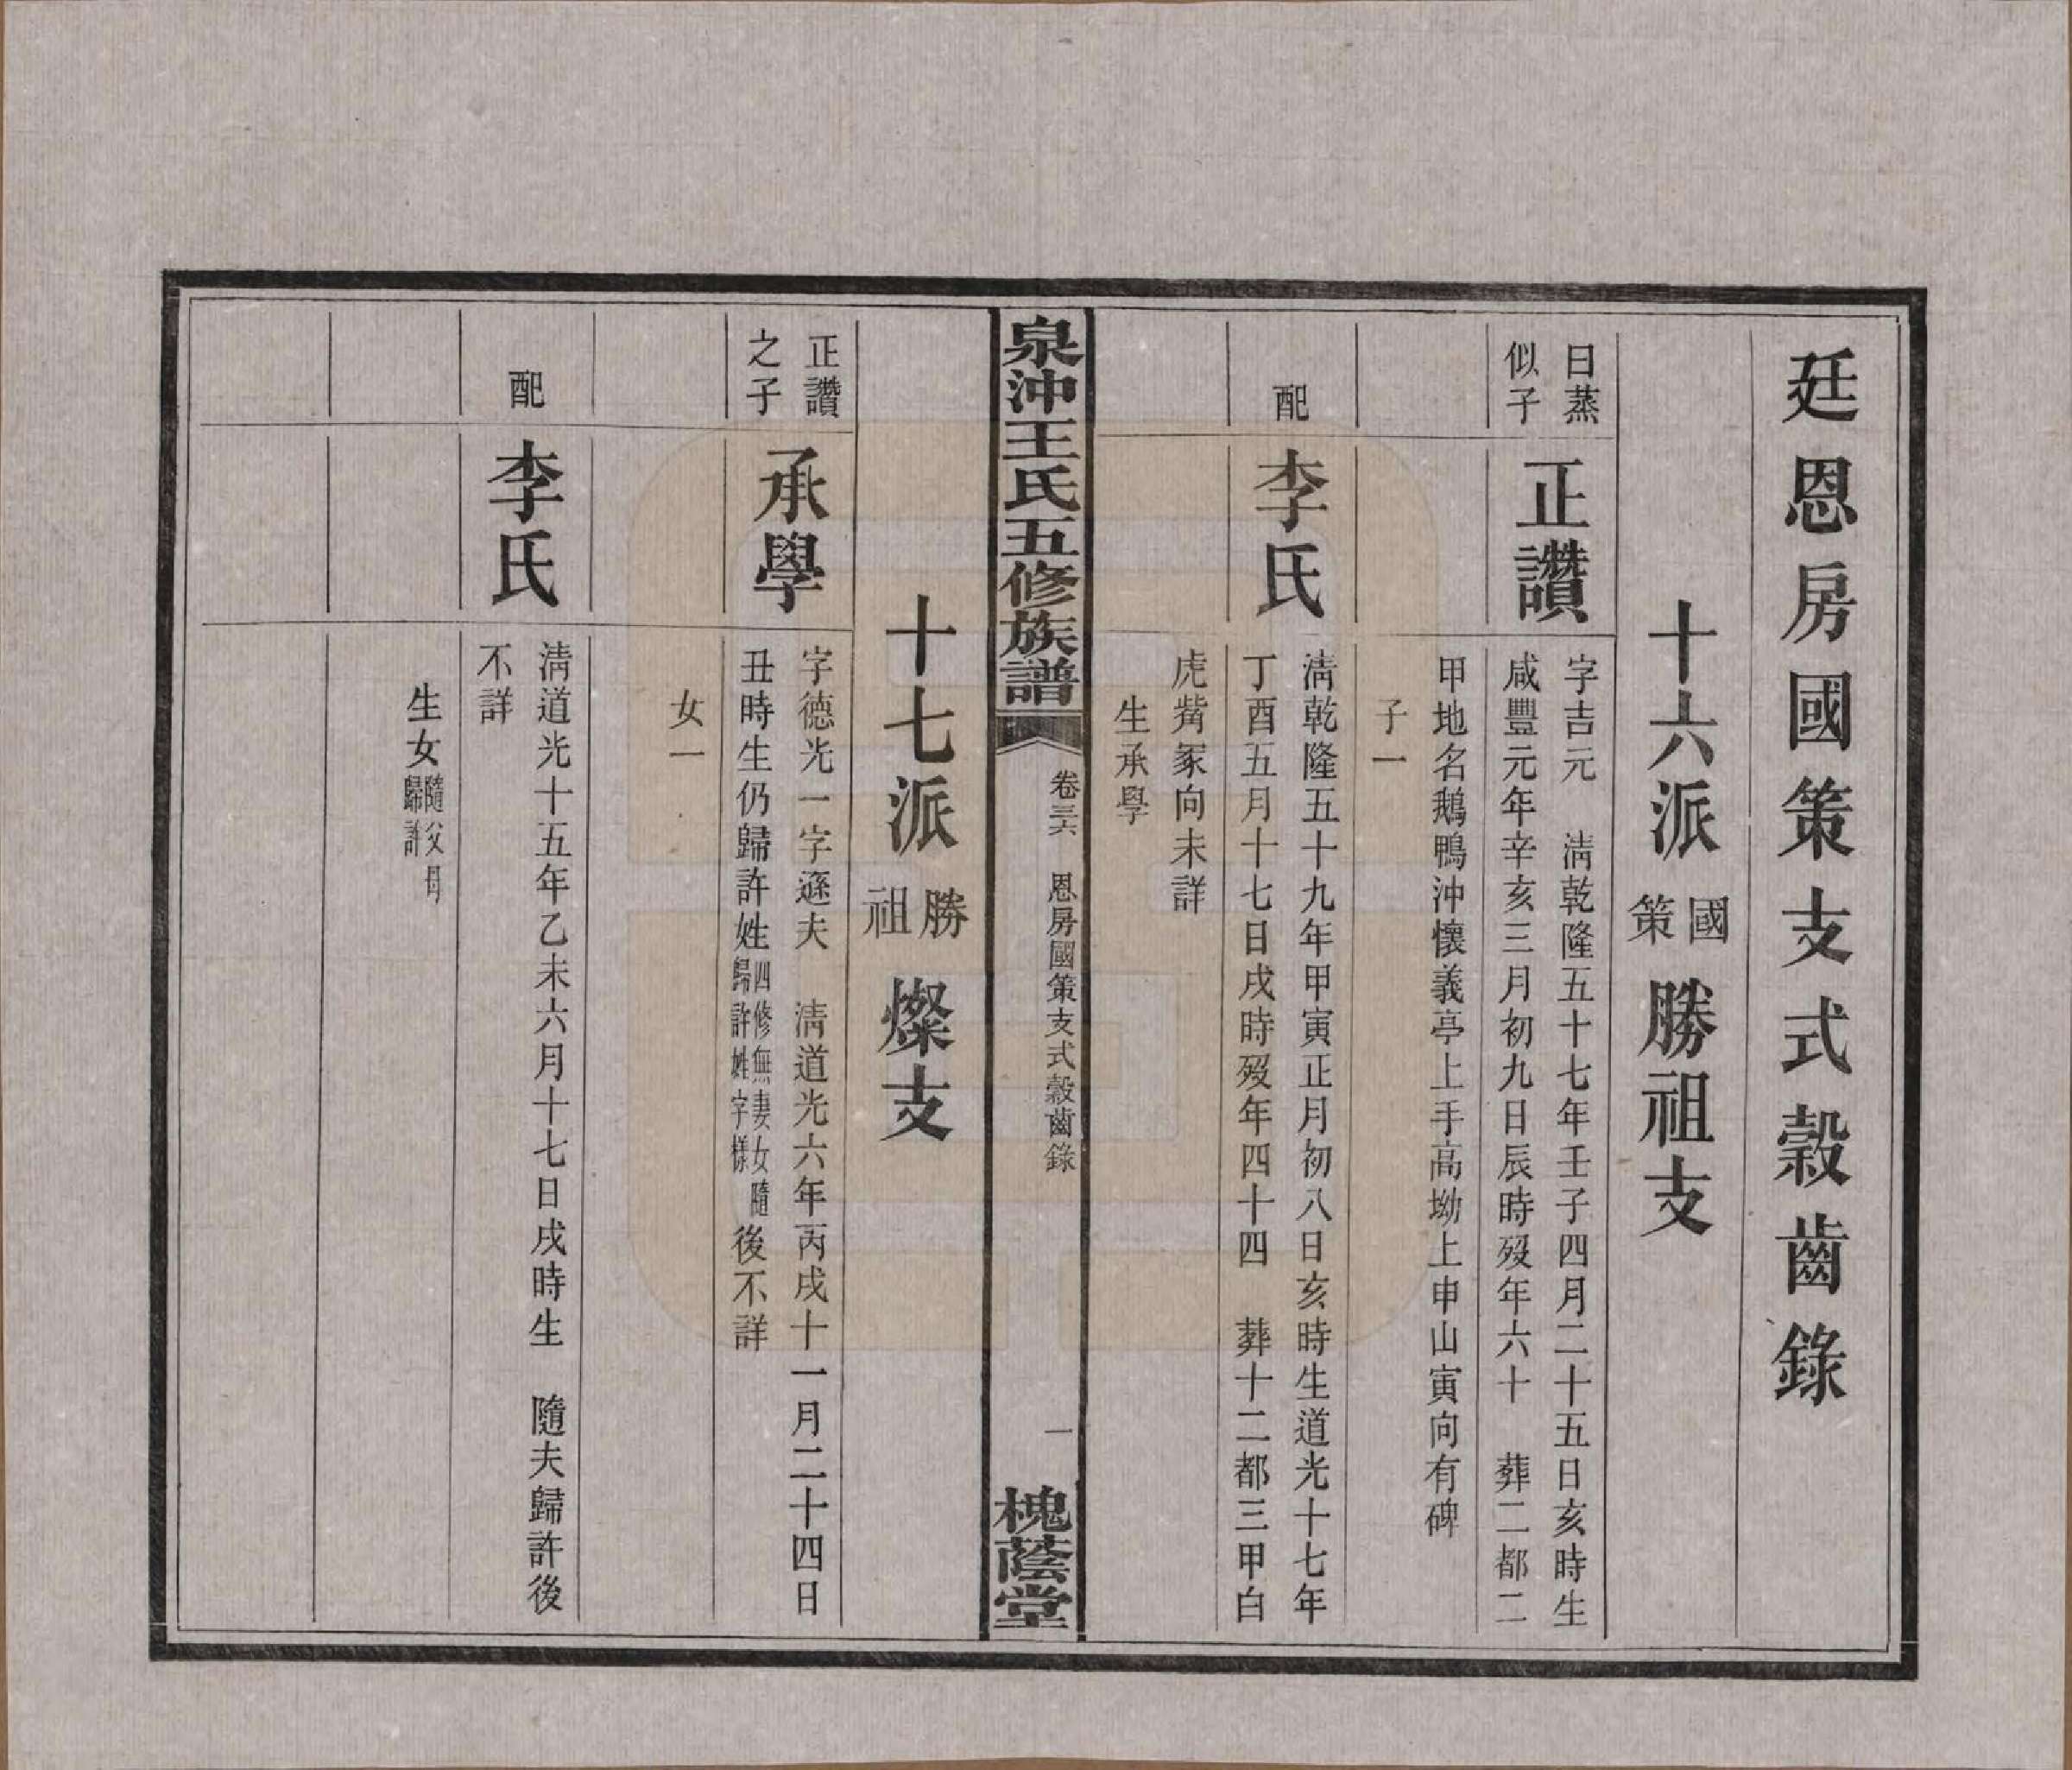 廷恩房國策支式穀齒錄
十六派 國策 勝祖支
日蒸
似子
正讚
字吉元　清乾隆五十七年壬子四月二十五日亥時生
咸豐元年辛亥三月初九日辰時歿年六十　葬二都二
甲地名鵝鴨沖懷義亭上手高坳上申山寅向有碑
子一
配
李氏
清乾隆五十九年甲寅正月初八日亥時生道光十七年
丁酉五月十七日戌時歿年四十四　葬十二都三甲白
虎觜冢向未詳
生承學
泉沖王氏五修族譜
卷三六　恩房國策支式穀齒錄
一
槐蔭堂
十七派 勝祖 燦支
正讚
之子
承學
字德光一字遜夫　清道光六年丙戌十一月二十四日
丑時生仍歸許姓四修無妻女隨歸許姓字樣後不詳
女一
配
李氏
清道光十五年乙未六月十七日戌時生　隨夫歸許後
不詳
生女隨父母歸許